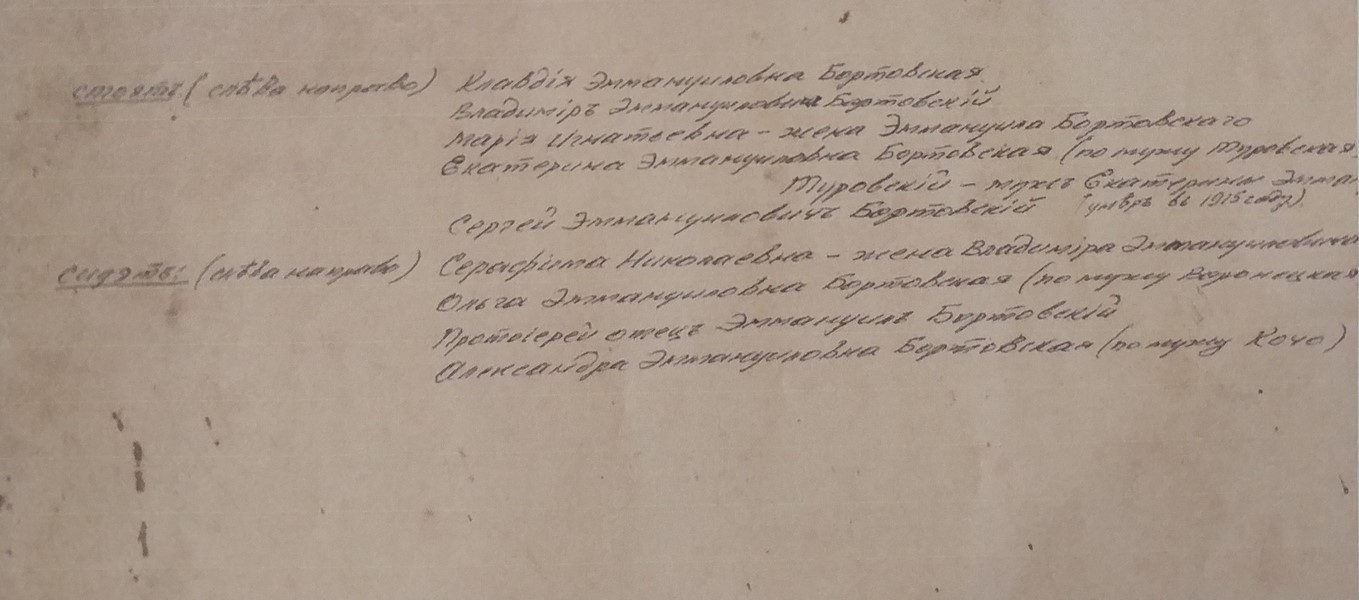 стоятъ: (слѣва направо) Клавдія Эммануиловна Бортовская.
Владиміръ Эммануиловичъ Бортовскій
Марія Игнатьевна – жена Эммануила Бортовскаго
Екатерина Эммануиловна Бортовская (по мужу Туровская
Туровскій – мужъ Екатерины Эмма
Сергей Эммануиловичъ Бортовскій (умеръ въ 1915 году).
сидятъ: (слѣва направо) Серафима Николаевна – жена Владиміра Эммануиловича
Ольга Эммануиловна Бортовская (по мужу Воронецкая
Протоіерей отецъ Эммануилъ Бортовскій
Александра Эммануиловна Бортовская (по мужу Кочо)